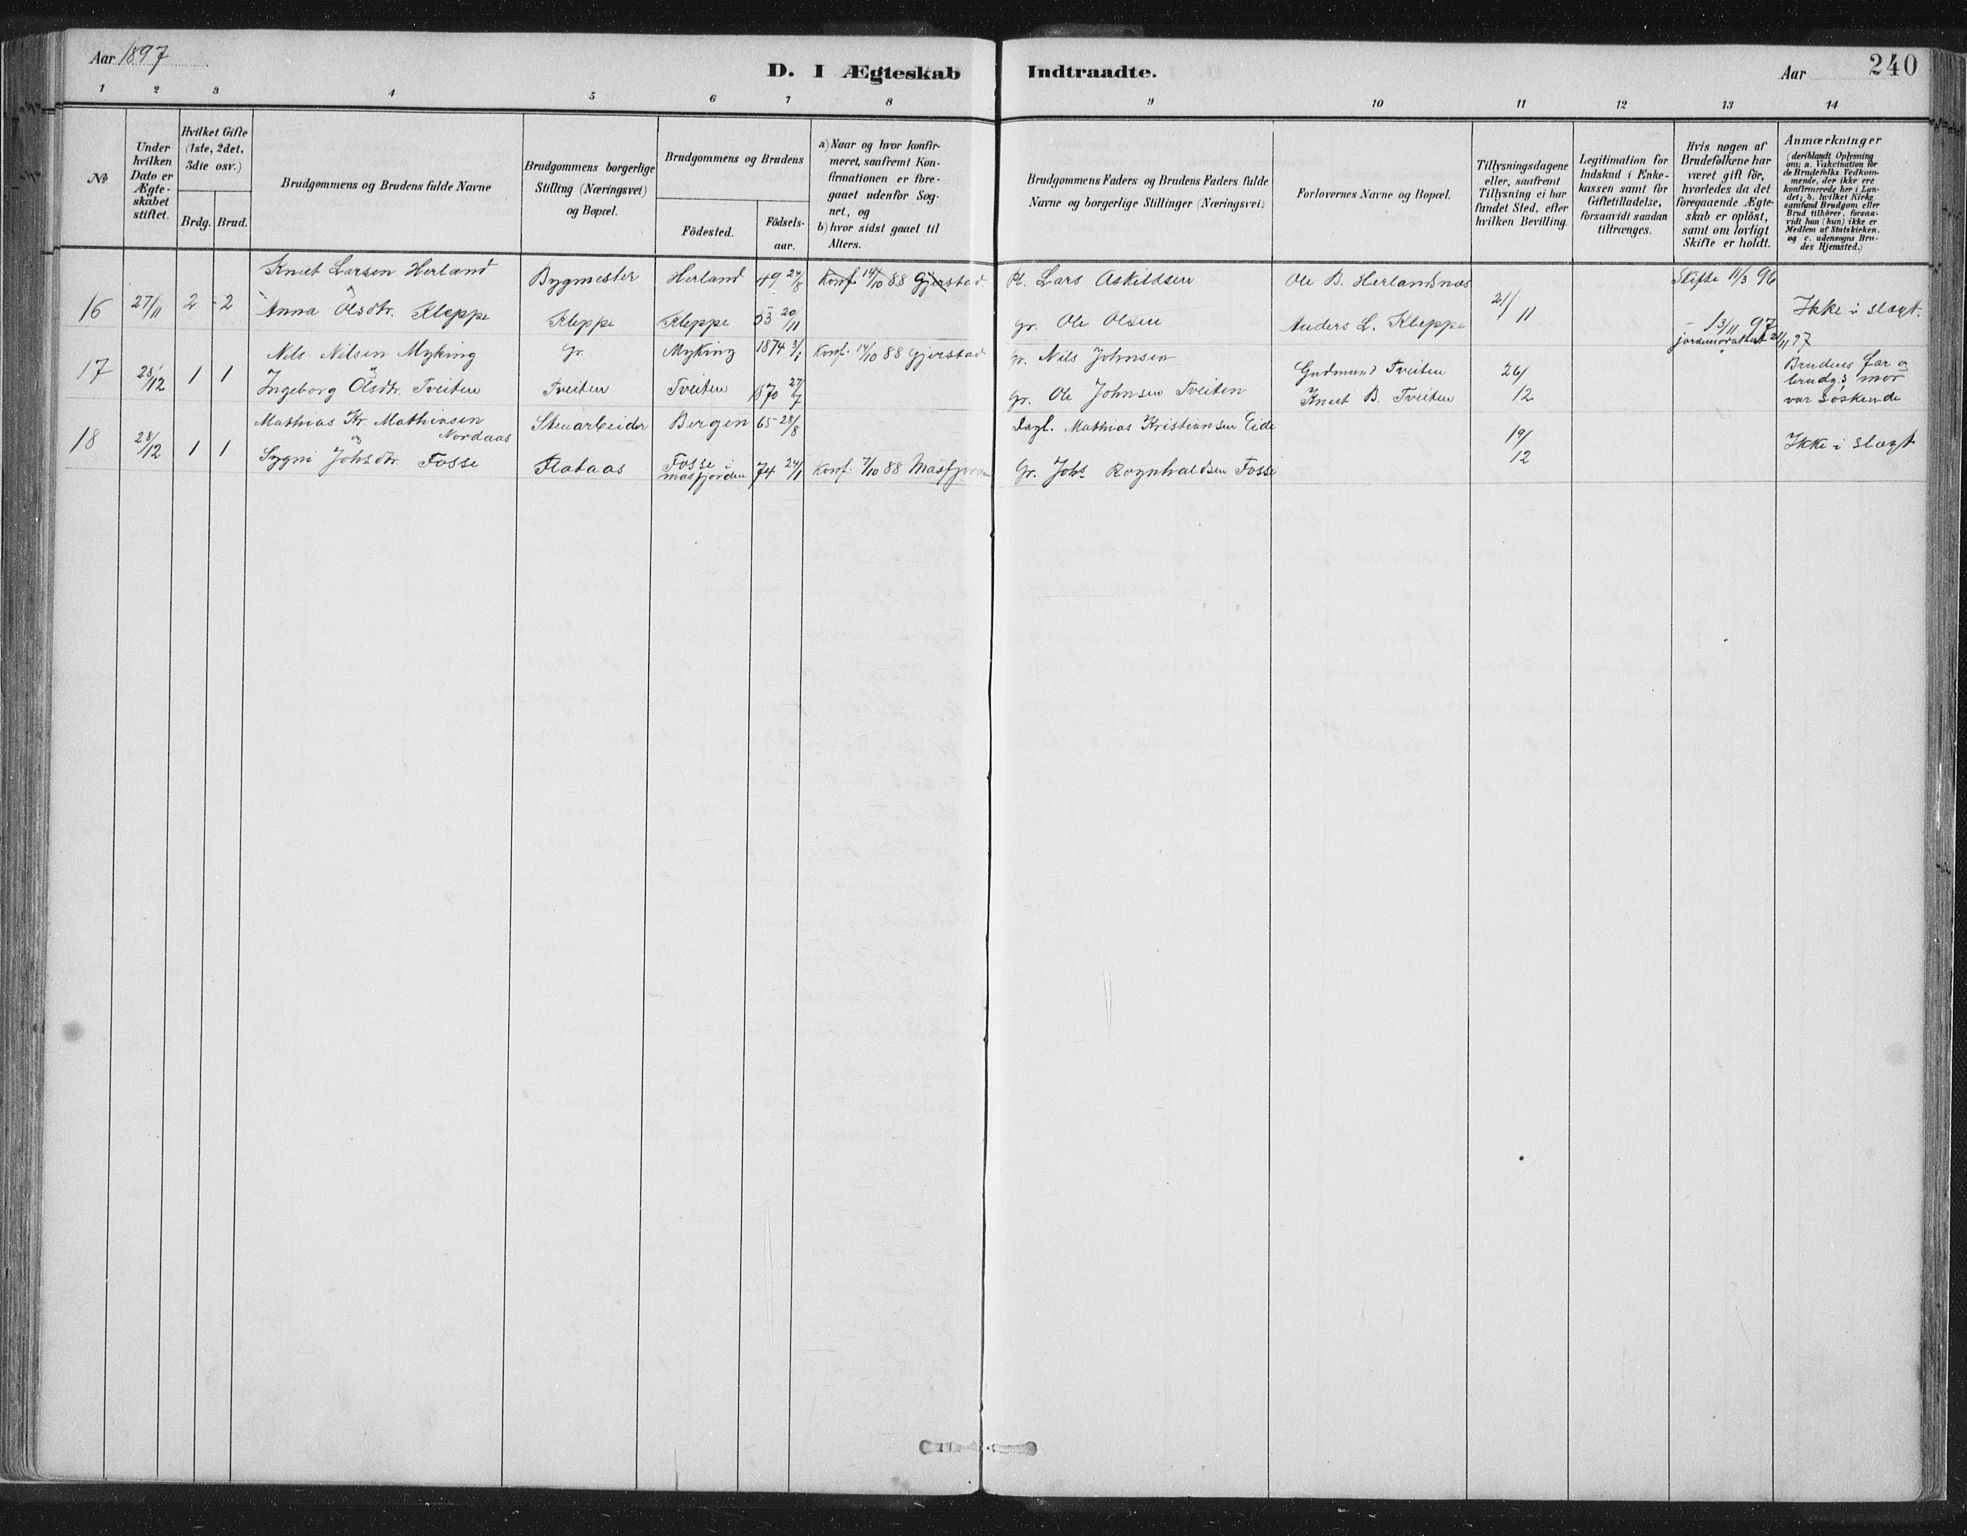 Aar 1897
D. I Ægteskab Indtraadte.
Aar
240
1 2 3 4 5 6 7 8 9 10 11 12 13 14
No
Under hvilken Dato er Ægteskabet stiftet.
Hvilket Gifte (1ste, 2det, 3die osv.)
Brdg. Brud.
Brudgommens og Brudens fulde Navne
Brudgommens borgerlige Stilling (Næringsvei) og Bopæl.
Brudgommens og Brudens
Födested.
Födsels-aar.
a) Naar og hvor konfir-
meret, saafremt Kon-
firmationen er fore-
gaaet udenfor Sog-
net, og
b) hvor sidst gaaet til
Alters.
Brudgommens Faders og Brudens Faders fulde
Navne og borgerlige Stillinger (Næringsvei)
Forlovernes Navne og Bopæl.
Tillysningsdagene
eller, saafremt
Tillysning ei har
fundet Sted, efter
hvilken Bevilling.
Legitimation for
Indskud i Enke-
kassen samt for
Giftetilladelse,
forsaavidt saadan
tiltrænges.
Hvis nogen af
Brudefolkene har
været gift før,
hvorledes da det
foregaaende Ægte-
skab er oplöst,
samt om lovligt
Skifte er holdt.
Anmærkninger
(deriblandt Oplysning
om: a. Vakcination for
de Brudefolks Vedkom-
mende, der ikke ere
konfirmerede her i Lan-
det; b. hvilket Kirke
samfund Brudgom eller
Brud tilhörer, forsaa-
vidt han (hun) ikke er
Medlem af Statskirken.
og c. udensogns Bru-
des Hjemsted.)
16 27/11 2 2 Knut Larsen Herland Bygmester Herland 49 24/8 Konf. 14/10 88 Gjerstad Lars Askildsen Ole B. Herlandsnæs 21/11 Skifte 11/3 96
og
Anna Olsdtr. Kleppe Kleppe Kleppe 53 20/11 Gr. Ole Olsen Anders L. Kleppe 13/11 97 Ikke i slægt.
17 28/12 1 1 Nils Nilsen Myking Gr. Myking 1874 3/1 Konf. 14/10 88 Gjerstad Gr. Nils Johnsen Gudmund Tveiten 26/12 jordemorattest 21/11 97 Brudens far og
og
Ingeborg Olsdtr. Tveiten Tveiten Tveiten 1870 27/7 Gr. Ole Johnsen Tveiten Knut B. Tveiten brudg.s mor
var søskende
18 28/12 1 1 Mathias Kr. Mathiasen Stenarbeider Bergen 65 28/8 Dagl. Mathias Kristiansen Eide 19/12 Ikke i slægt
Nordaas
og
Sygni Johsdtr. Fosse Flataas Fosse i 74 24/1 Konf. 7/10 88 Masfjorden Gr. Johs Rognhaldsen Fosse
masfjorden